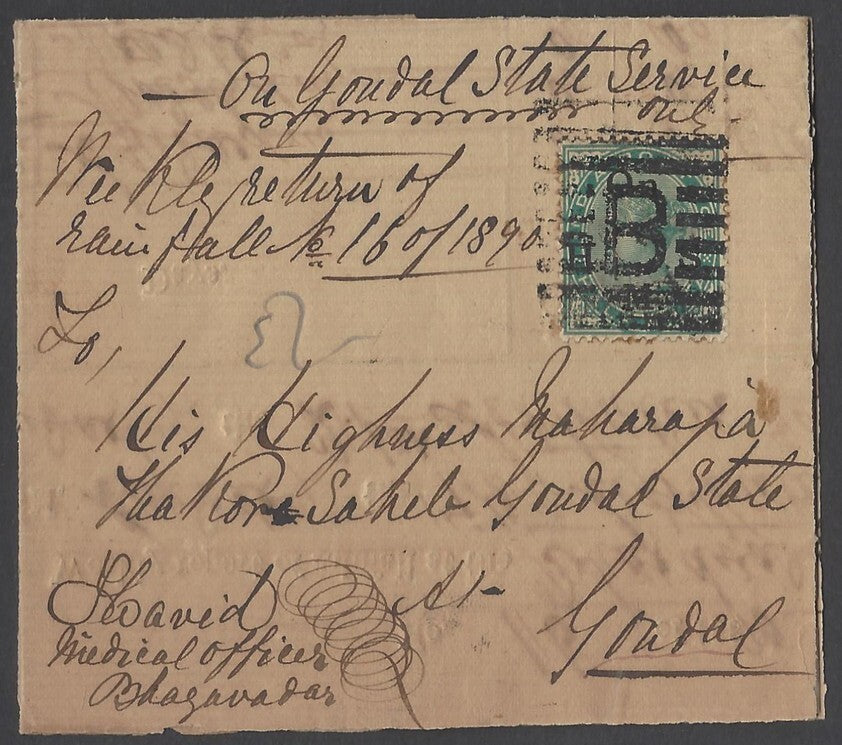 On Gondal State Service
only
Weekly return of
rain fall No 16 of 1890
B
To,
His Highness Maharaja
Thakore Saheb Gondal State
At
Gondal
David
Medical officer
Bhagavadar